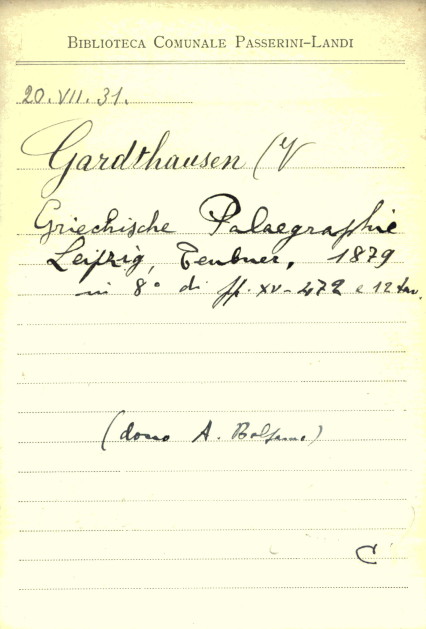 BIBLIOTECA COMUNALE PASSERINI-LANDI
20.VII.31.
Gardthausen (V
Griechische Palaegraphie
Leipzig, Teubner, 1879
in 8° di pp. XV-472 e 12 tav.
(dono A. Balsamo)
C